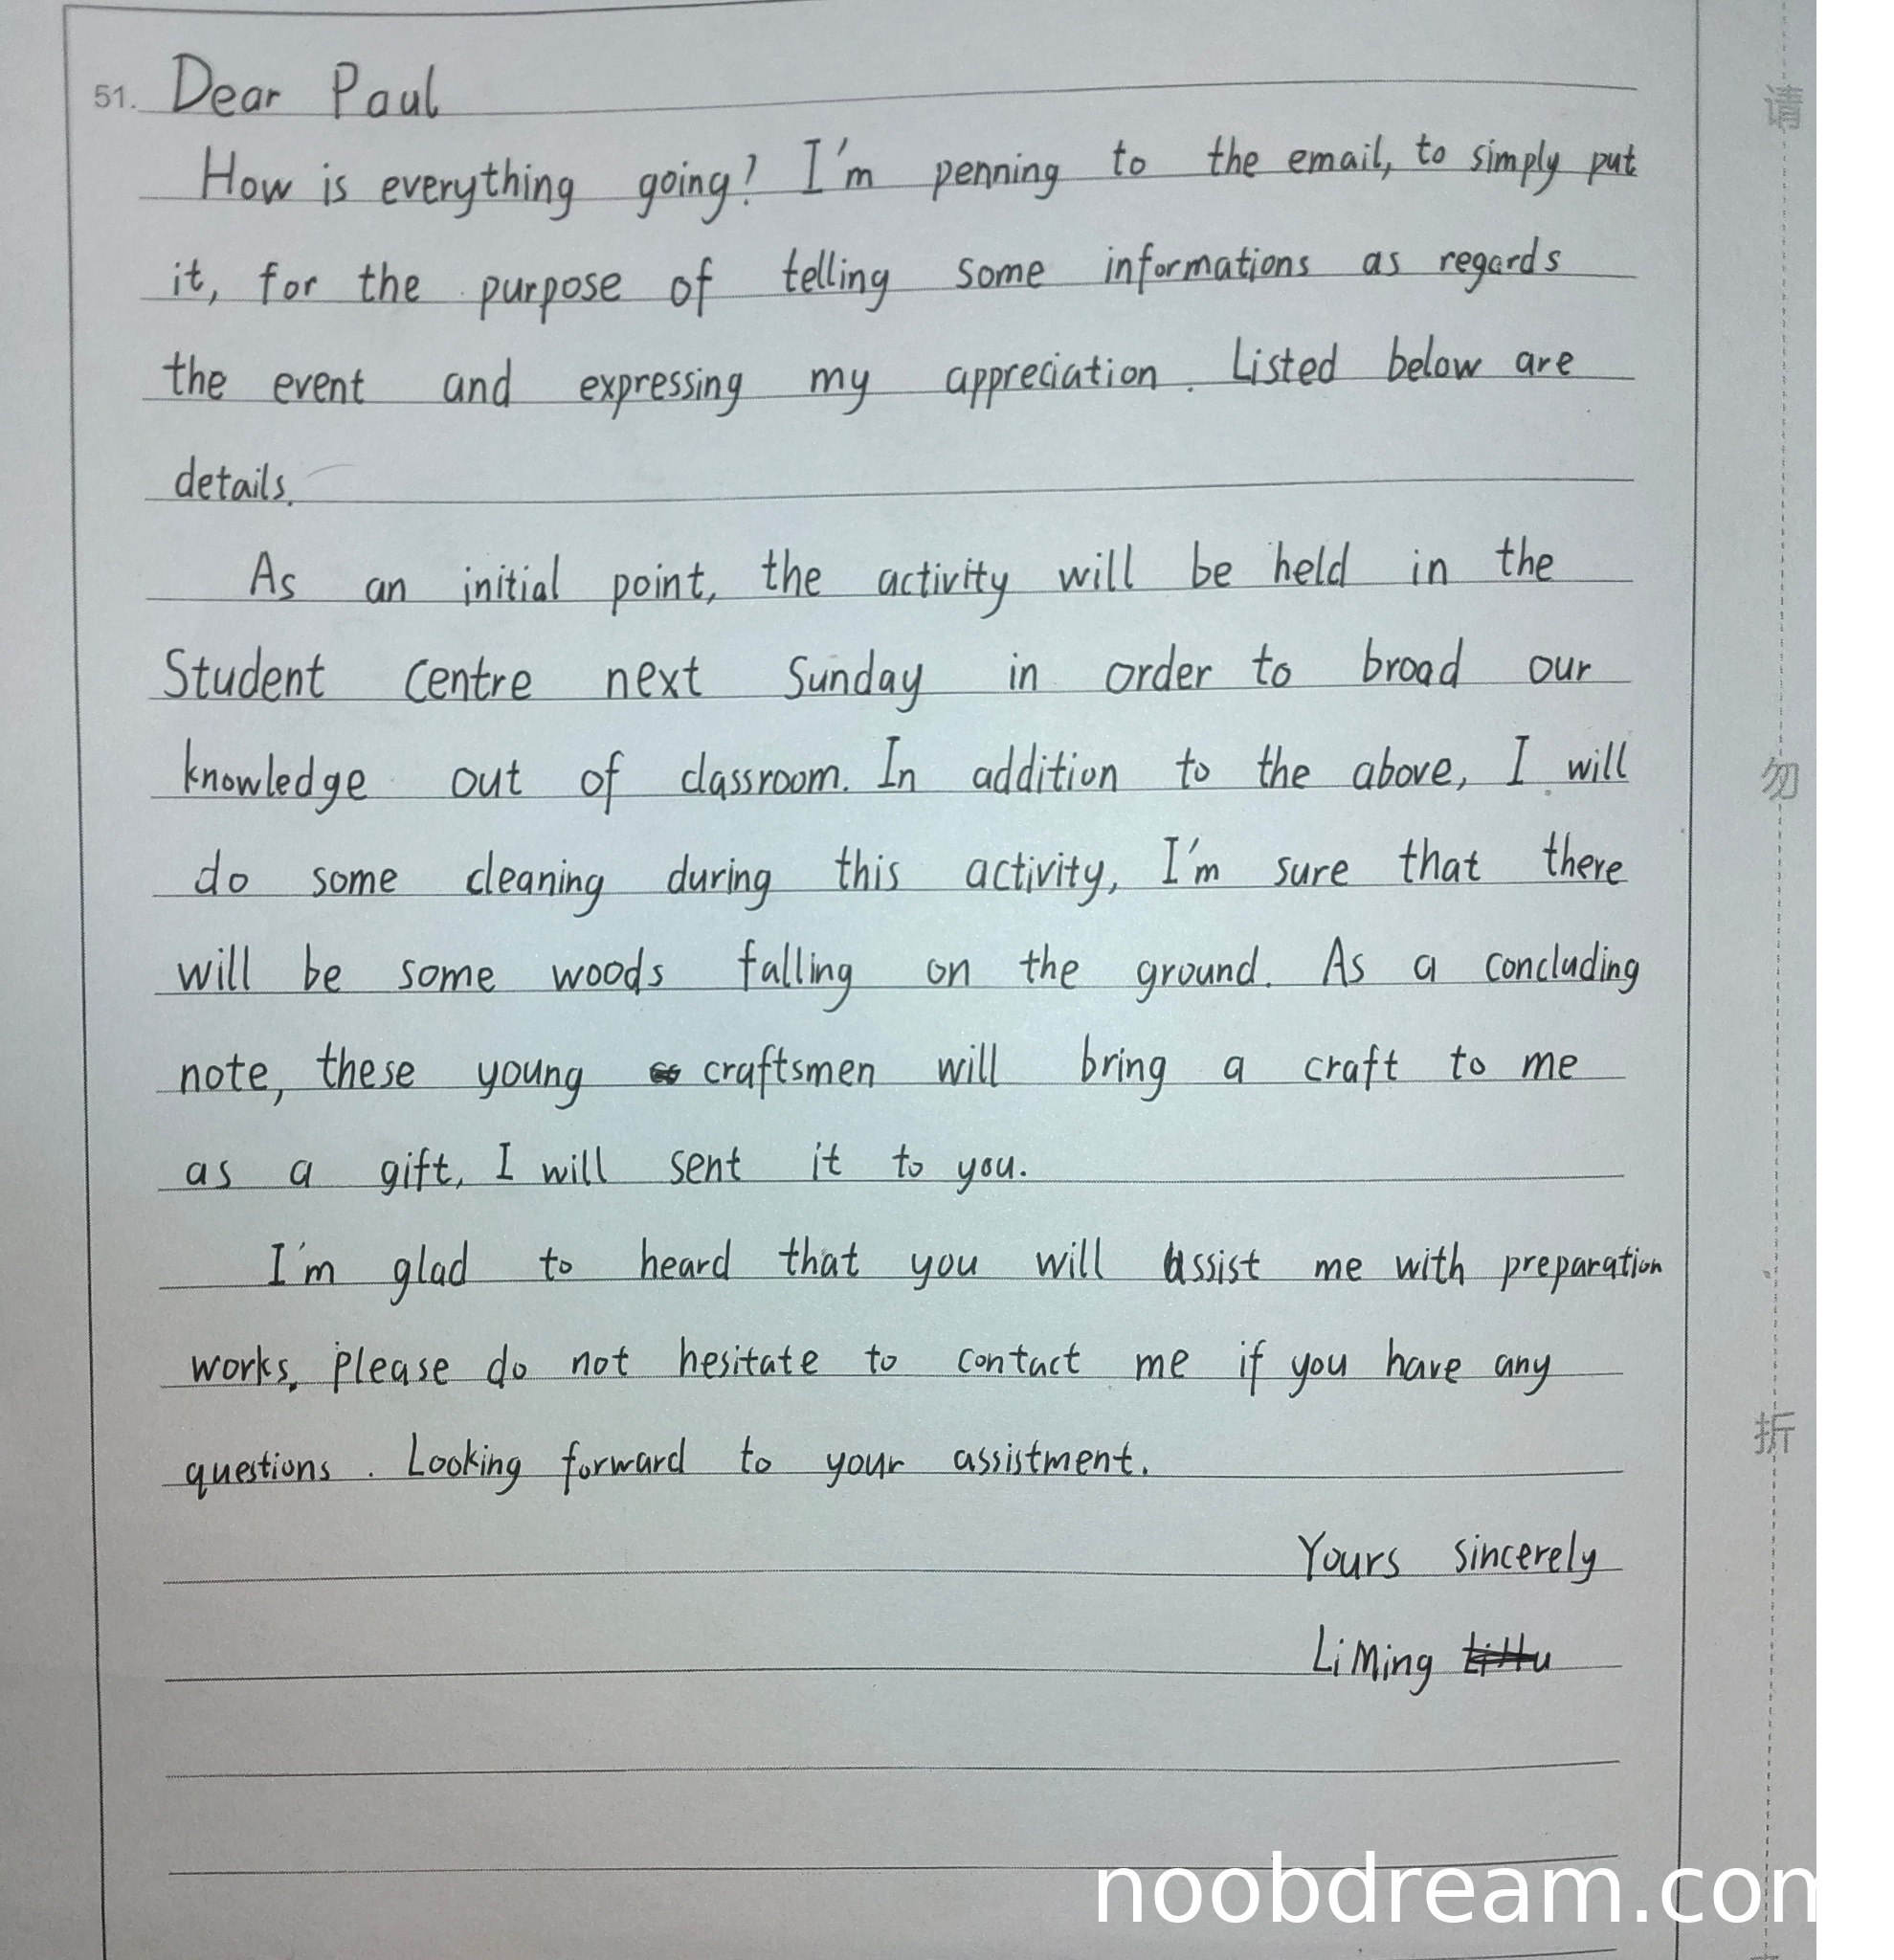 51. Dear Paul
How is everything going? I'm penning to the email, to simply put
it, for the purpose of telling some informations as regards
the event and expressing my appreciation. Listed below are
details.
As an initial point, the activity will be held in the
Student Centre next Sunday in order to broad our
knowledge out of classroom. In addition to the above, I will
do some cleaning during this activity, I'm sure that there
will be some woods falling on the ground. As a concluding
note, these young craftsmen will bring a craft to me
as a gift, I will sent it to you.
I'm glad to heard that you will assist me with preparation
works. Please do not hesitate to contact me if you have any
questions. Looking forward to your assistment.
Yours sincerely
Li Ming
请
勿
折
noobdream.com